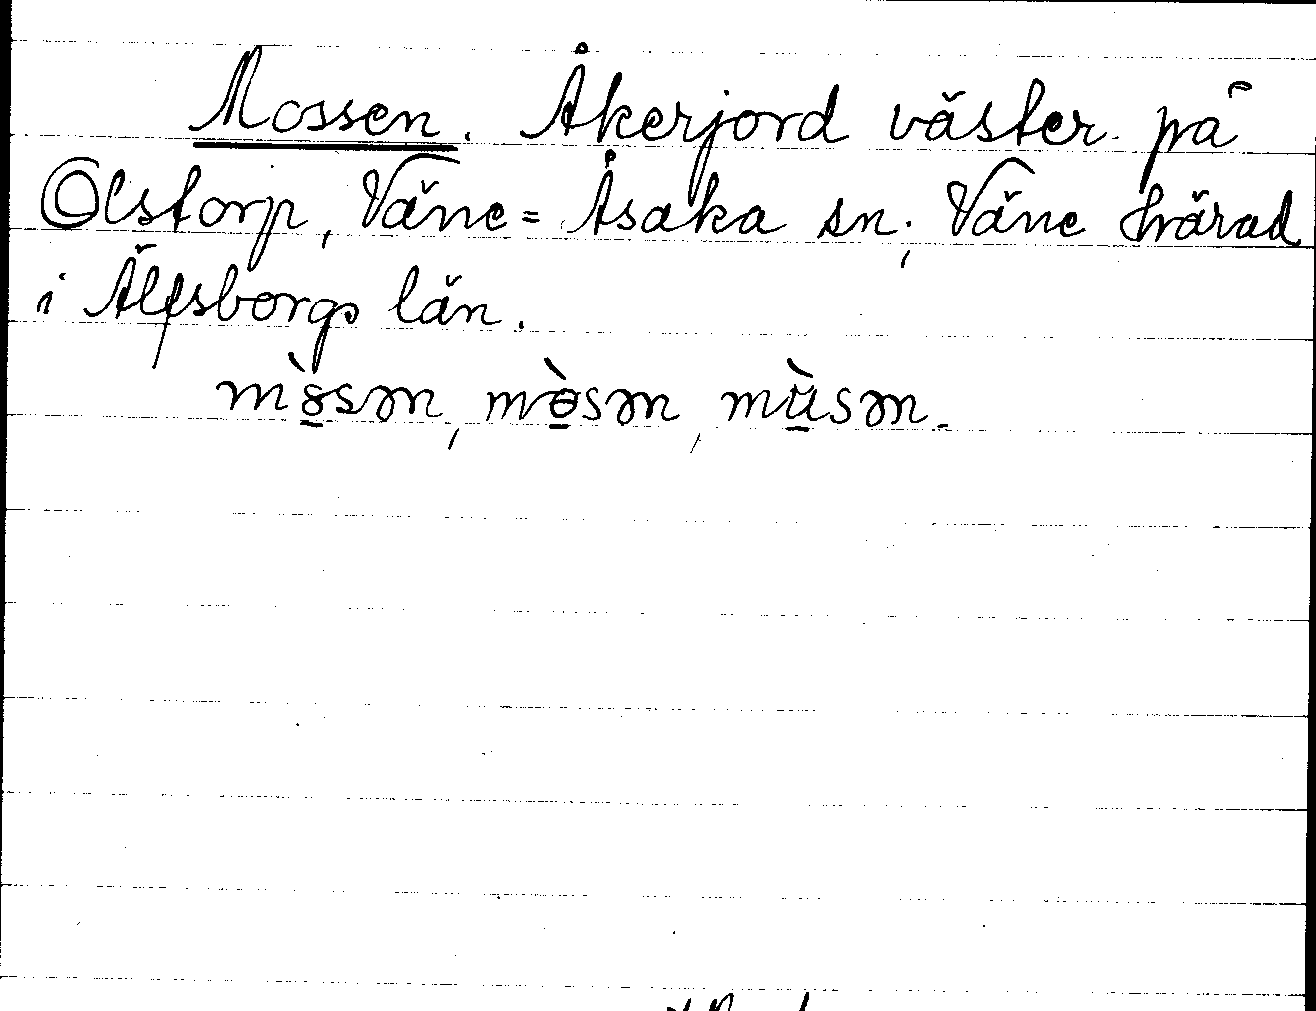 Mossen. Åkerjord väster på
Olstorp, Väne=Åsaka sn; Väne härad
i Älfsborgs län.
mò̱sən, mɵ̱̀sən, mù̱sən.